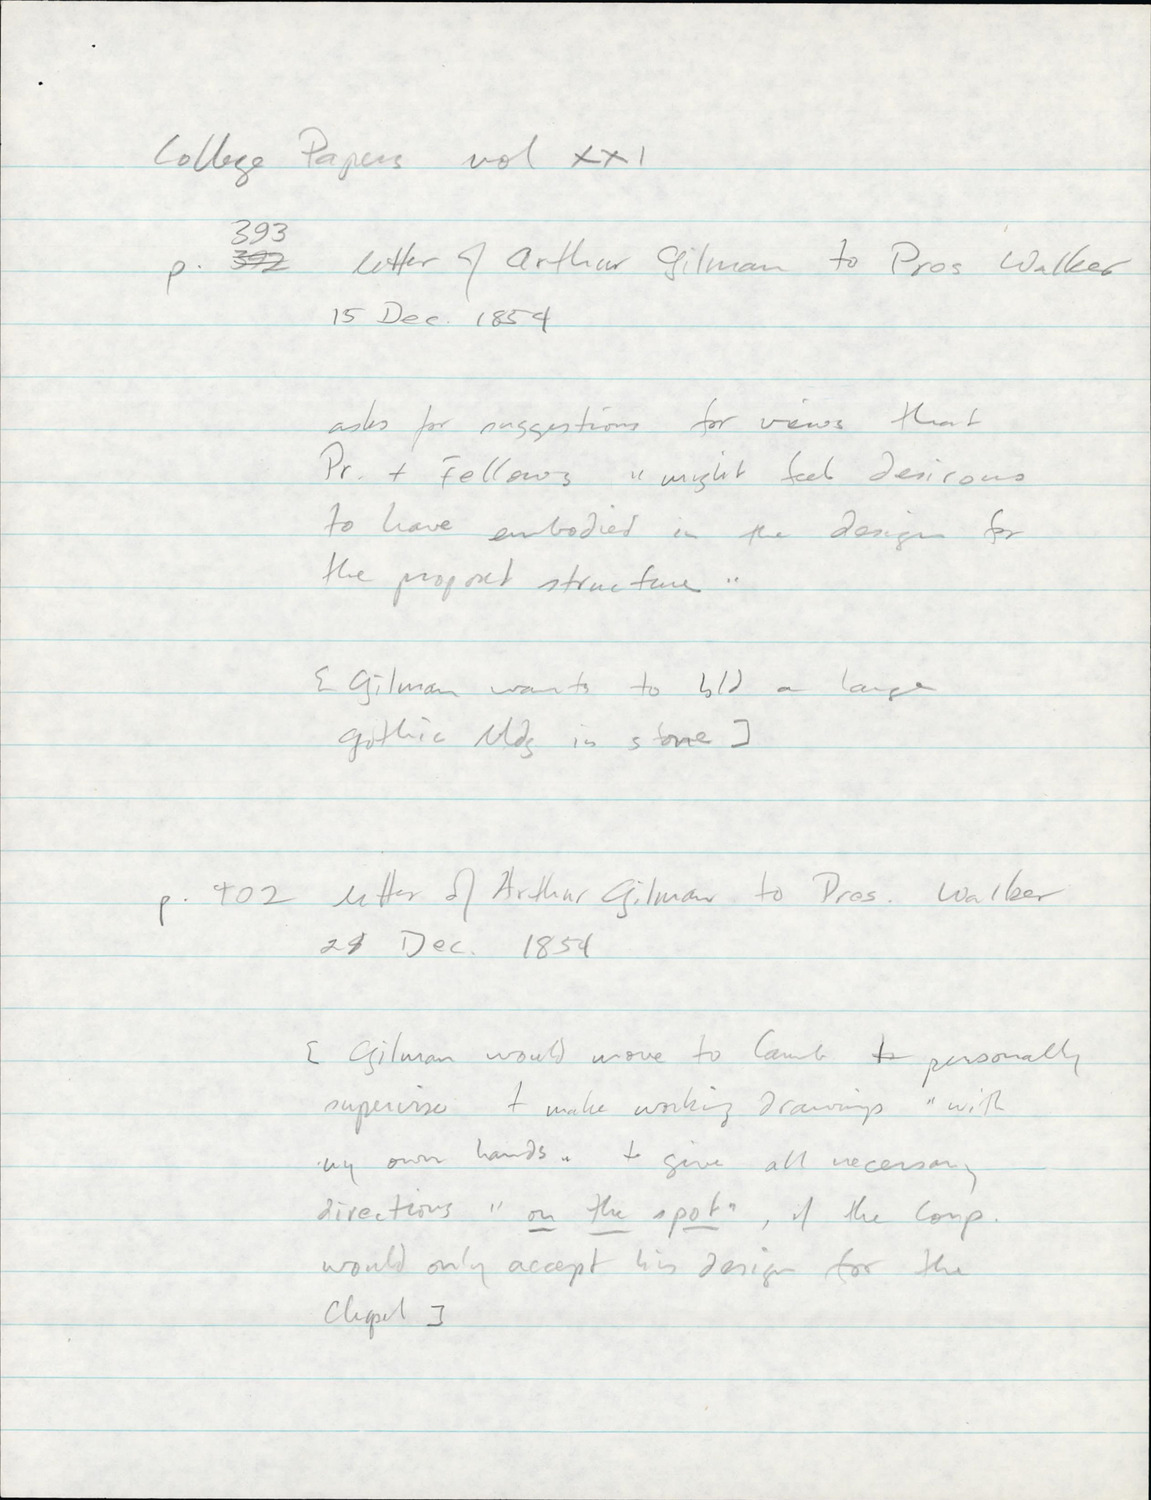 College Papers vol XXI
393
p. 392 letter of Arthur Gilman to Pres Walker
15 Dec. 1854
asks for suggestions for views that
Pr. + Fellows "might feel desirous
to have embodied in the design for
the proposed structure"
[Gilman wants to bld a large
gothic bldg in stone]
p. 402 letter of Arthur Gilman to Pres. Walker
28 Dec. 1854
[Gilman would move to Camb to personally
supervise + make working drawings "with
my own hands" + give all necessary
directions "on the spot", if the Corp.
would only accept his design for the
Chapel]